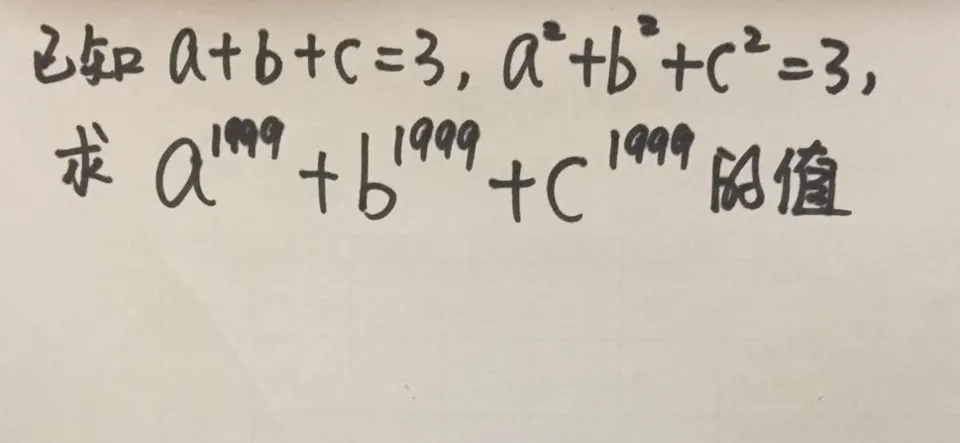 已知 a+b+c=3, a²+b²+c²=3,
求 a¹⁹⁹⁹+b¹⁹⁹⁹+c¹⁹⁹⁹的值